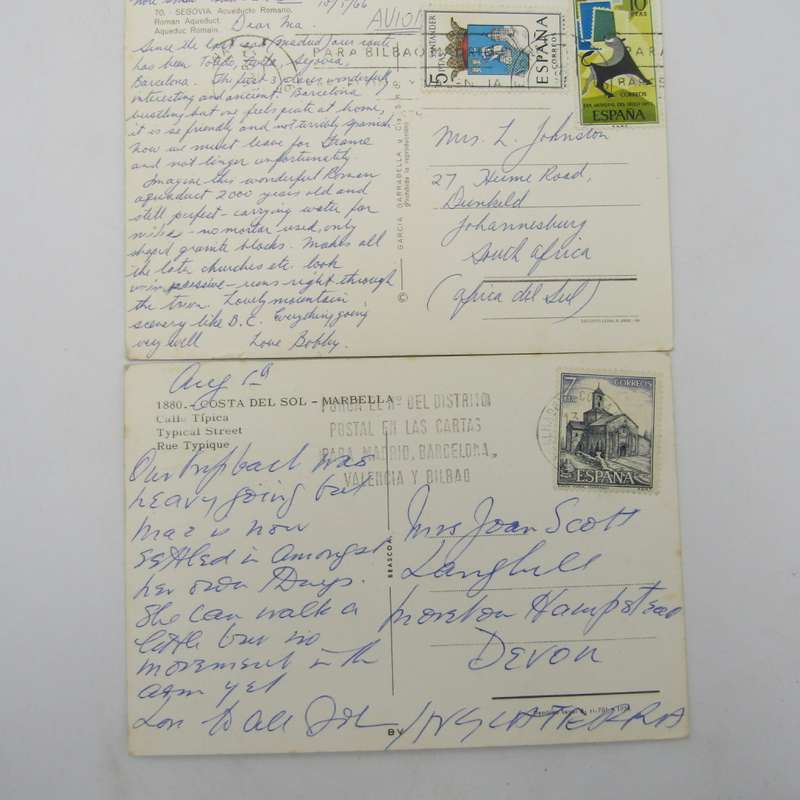 10/5/66
70. - SEGOVIA. Acueducto Romano.
Roman Aqueduct.
Aqueduc Romain.
AVION
Dear Ma.
Since the last card (Madrid) our route
has been Toledo, Avila, Segovia,
Barcelona. The first 3 places wonderfully
interesting and ancient. Barcelona
bustling but one feels quite at home,
it is so friendly and not terribly Spanish.
Now we must leave for France
and not linger unfortunately.
Imagine this wonderful Roman
aquaduct 2000 years old and
still perfect - carrying water for
miles - no mortar used, only
shaped granite blocks. Makes all
the later churches etc. look
unimpressive - runs right through
the town. Lovely mountain
scenery like B.C. Everything going
very well Love Bobby.
GARCIA GARRABELLA y Cía.
Prohibida la reproducción
©
SANTANDER
5 PTAS
ESPAÑA
CORREOS
10 PTAS
CORREOS
ESPAÑA
PARA BILBAO
PARA
Mrs. L. Johnston
27 Hume Road,
Dunkeld
Johannesburg
South Africa
(Africa del Sul)
Aug 19
1880. - COSTA DEL SOL - MARBELLA
Calle Típica
Typical Street
Rue Typique
PONGA EL Nº DEL DISTRITO
POSTAL EN LAS CARTAS
PARA MADRID, BARCELONA,
VALENCIA Y BILBAO
7 PTAS
CORREOS
ESPAÑA
Our trip back was
heavy going but
Mac is now
settled in amongst
her own things.
She can walk a
little but no
movement in the
arm yet
Love to all
BEASCOA
BV
Mrs Joan Scott
Langhill
Moreton Hampstead
DEVON
INGLATERRA